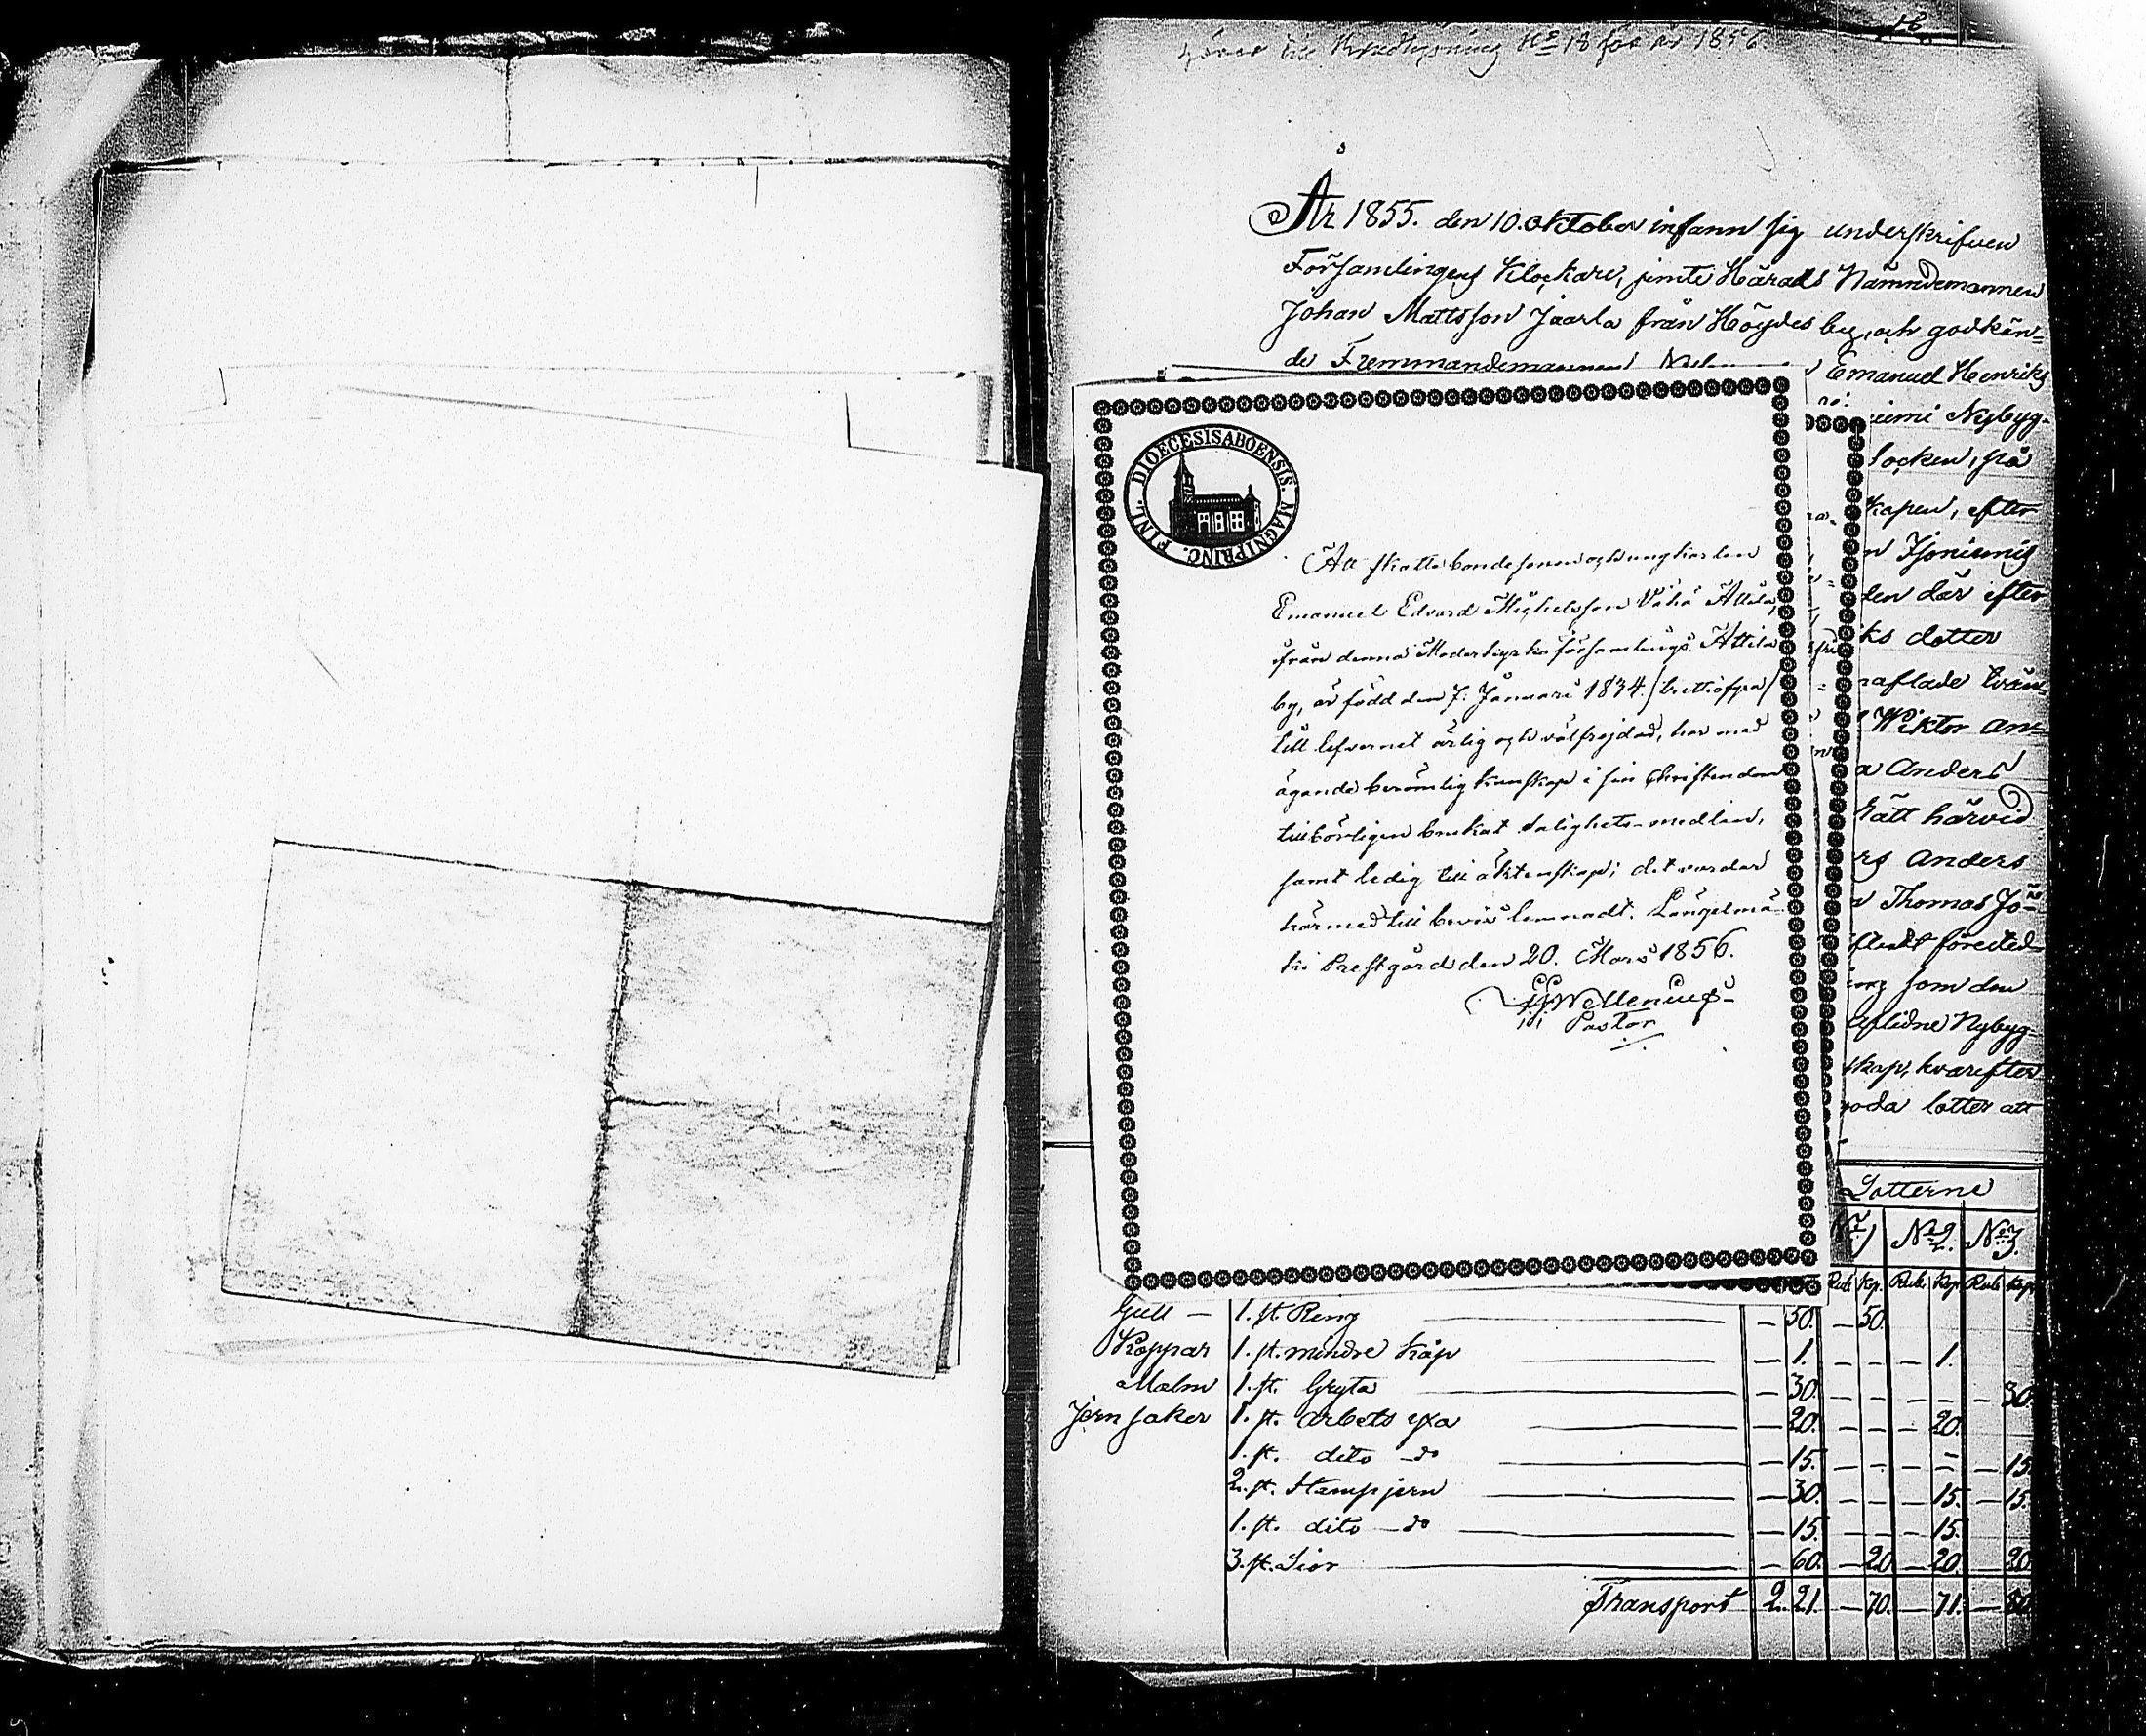 till Kyrkolysning No 18 för år 1856.
År 1855. den 10. Oktober infann sig underskrifven
Församlingens Klockare, jemte Härads Nämndemannen
Johan Mattsson Jaarla från Höydes by, och godkän-
de Fremmandemannen Emanuel Henriks
Nybyg-
socken, på
kapen, efter
n
den där efter
ks dotter
naflade
Wiktor An-
a Anders
Rätt härvid
rs Anders
n Thomas Jö-
som den
aflidne Nybyg-
skap, hvarefter
goda lotter att
DIOECESIS ABOENSIS. MAGNI PRINC. FINL.
Att skattebondesonen och ungkarlen
Emanuel Edvard Michelsson Vähä Attila,
ifrån denna Moderkyrko församlings Attila
by, är född den 7. Januari 1834. /trettiofyra/
till lefvernet ärlig och välfrejdad, har med
ägande berömlig kunskap i sin Christendom
tillbörligen brukat salighets-medlen,
samt ledig till äktenskap; det varder
härmed till bevis lemnadt. Längelmä-
ki Prestgård den 20. Mars 1856.
Wellenius
Pastor
Lotterne
No 1 No 2. No 3.
Rub Kp. Rub Kp Rub Kop
Gull — 1. st. Ring — 50. — 50.
Koppar 1. st. mindre Kåp — 1. — — — 1.
Malm 1. st. Gryta — 30. — — — — — 30.
Jern saker 1. st. arbets yxa — 20. 20.
1. st. dito do — 15. — — — — — 15.
2. st. Stampjern — 30. — — — 15. — 15.
1. st. dito do — 15. — — — 15.
3. st. Lior — 60. — 20. — 20. 20.
Transport 2. 21. — 70. — 71. — 80.